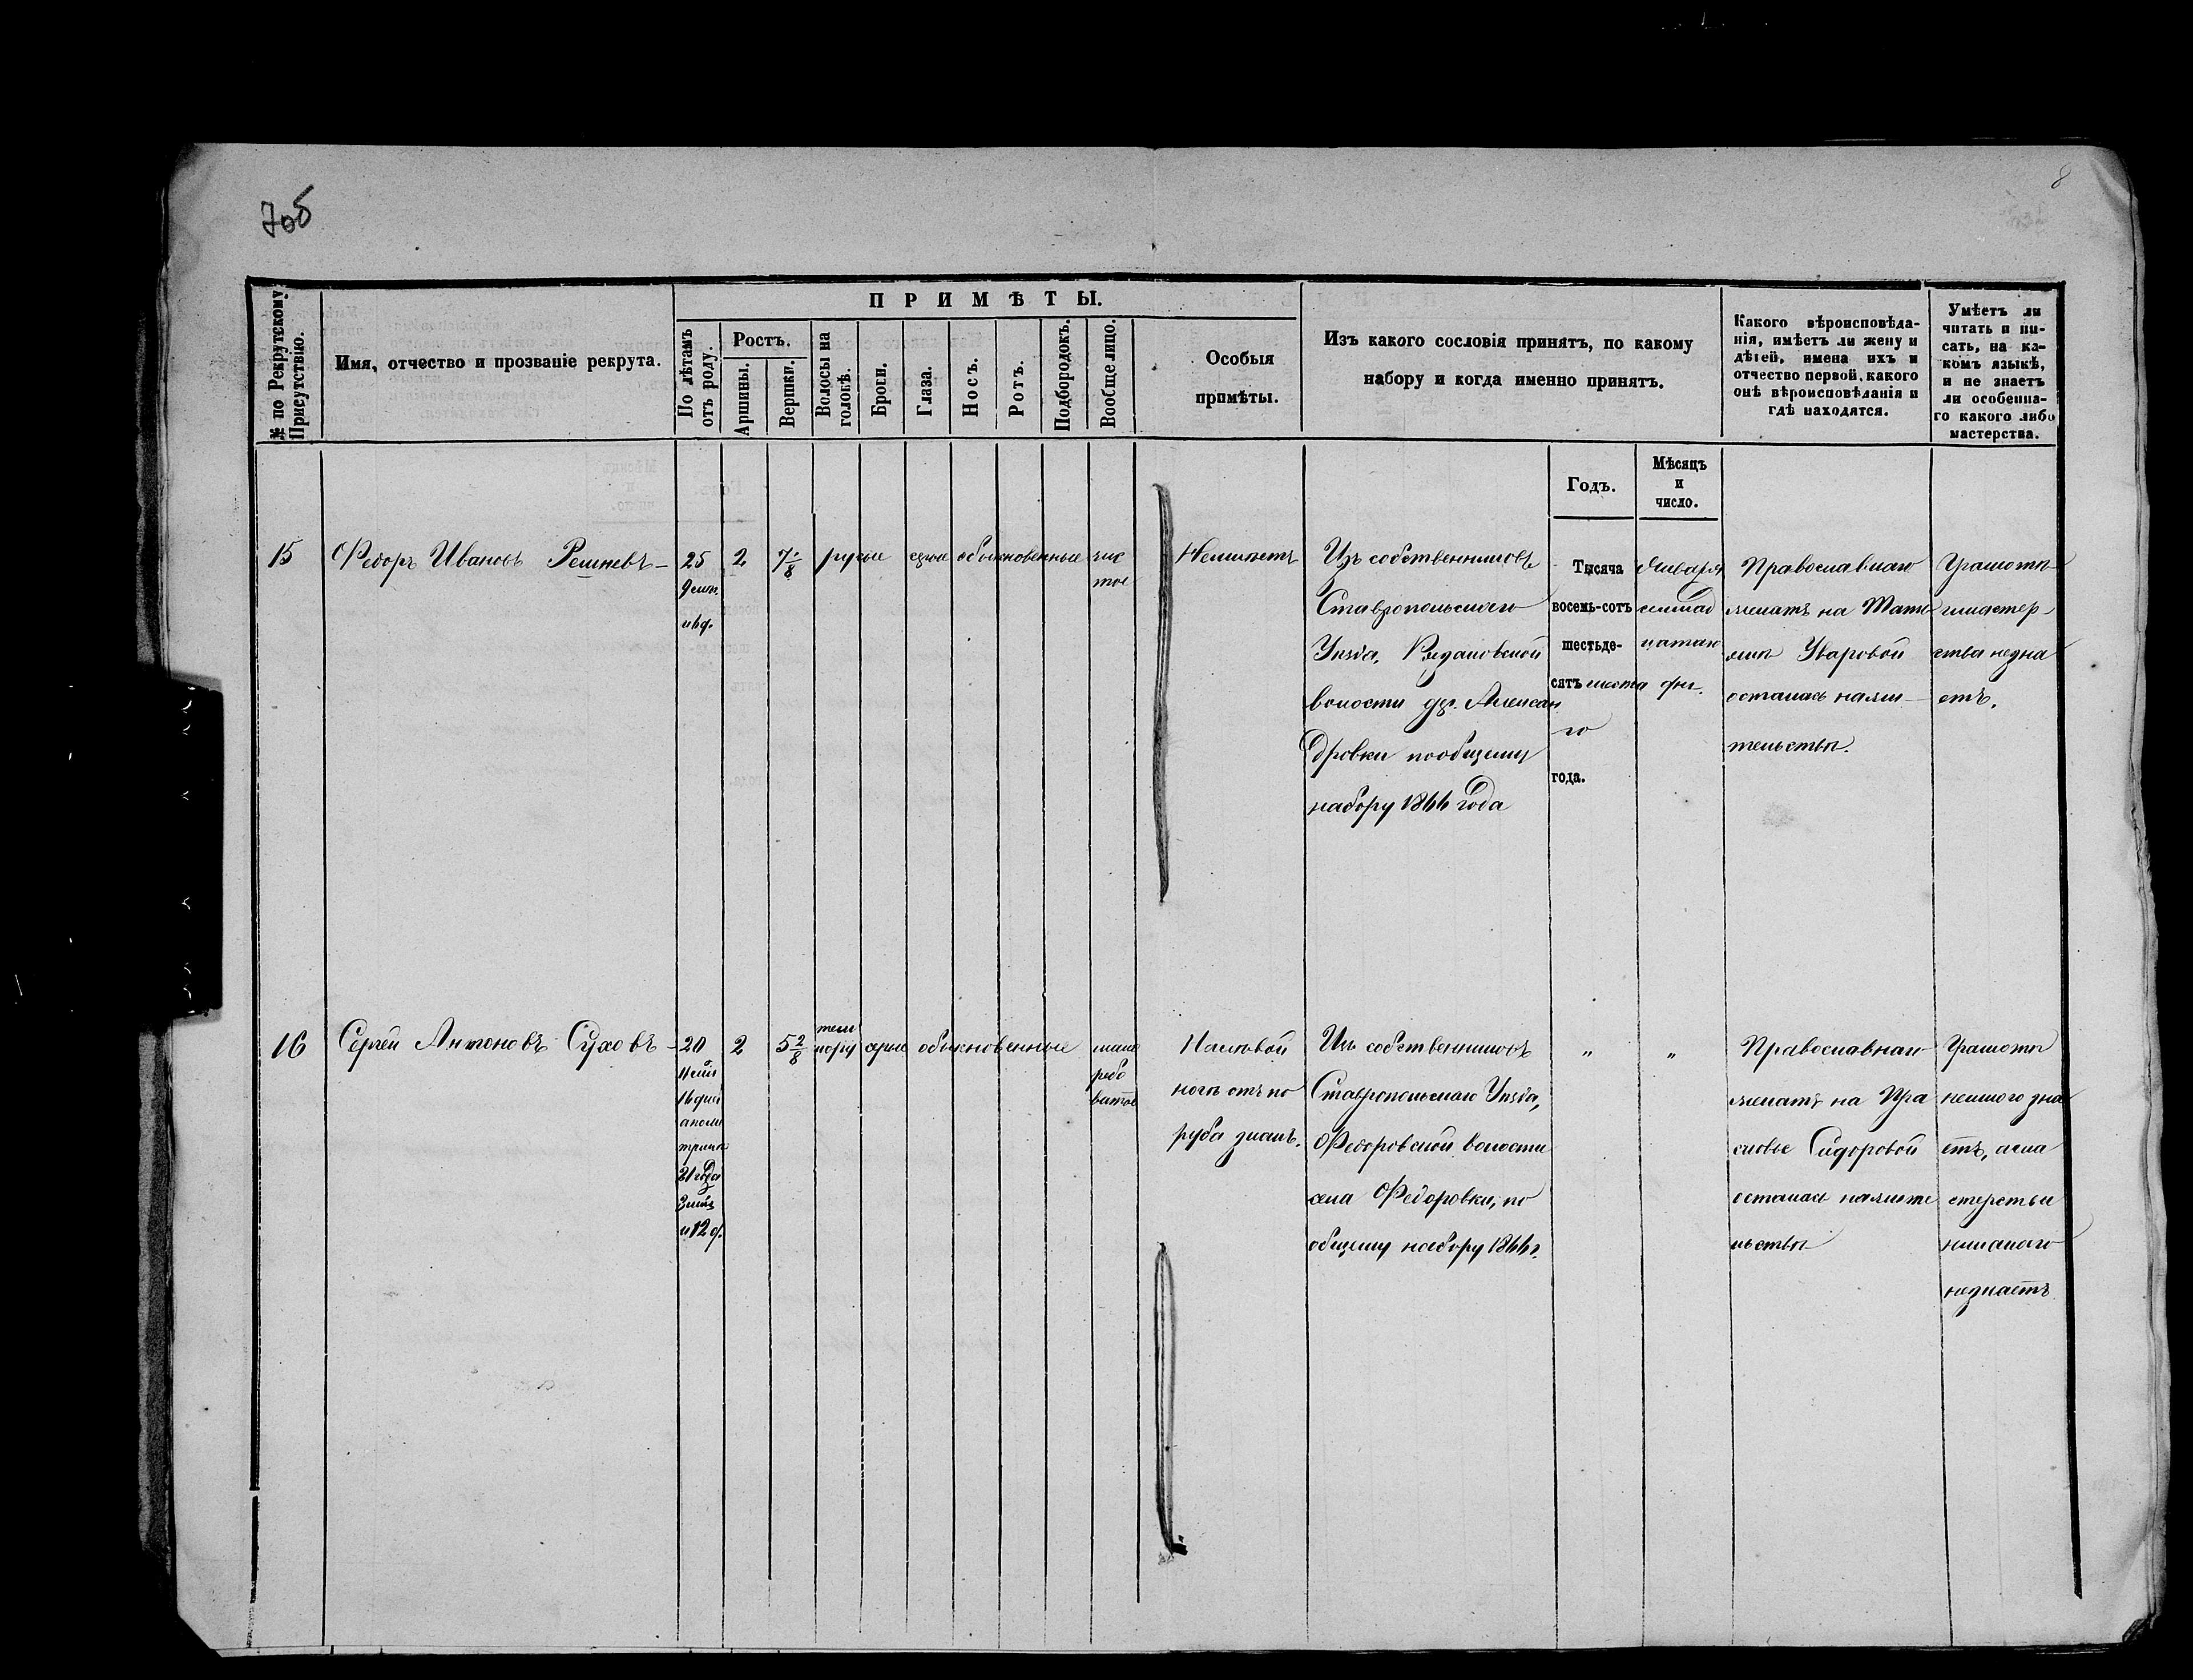 7об
8
№ по Рекрутскому Присутствію.
Имя, отчество и прозваніе рекрута.
ПРИМѢТЫ.
По лѣтамъ отъ роду.
Ростъ.
Аршины.
Вершки.
Волосы на головѣ.
Брови.
Глаза.
Носъ.
Ротъ.
Подбородокъ.
Вообще лицо.
Особыя
примѣты.
Изъ какого сословія принятъ, по какому
набору и когда именно принятъ.
Какого вѣроисповѣда-
нія, имѣетъ ли жену и
дѣтей, имена ихъ и
отчество первой, какого
онѣ вѣроисповѣданія и
гдѣ находятся.
Умѣетъ ли
читать и пи-
сать, на ка-
комъ языкѣ,
и не знаетъ
ли особенна-
го какого либо
мастерства.
Годъ.
Мѣсяцъ
и
число.
15
Федоръ Ивановъ
25
9 мѣс.
2
7 1/8
русые
сѣрые
обыкновенные
чис
тое
Неимѣетъ
Изъ собственниковъ
Ставропольскаго
Уѣзда,
волости др. Алексан
дровки пообщему
набору 1866 года
Тысяча
восемь-сотъ
шестьде-
сятъ шеста
го
года.
Января
семнад
цатаго
дня.
Православнаго
женатъ на Тать
янѣ Уваровой
осталась нажи-
тельствѣ.
Грамотѣ
имастер-
ства незна
етъ.
16
Сергѣй Антоновъ Суховъ
20
11 мѣс
16 дней
21 года
3 мѣс
и 12 д.
2
5 2/8
тем
норус
сѣрые
обыкновенные
рябо
ватое
Налѣвой
ногѣ отъ по
руба знакъ.
Изъ собственниковъ
Ставропольскаго Уѣзда,
Федоровской волости
села Федоровки, по
общему набору 1866 г.
"
"
Православнаго
женатъ на Пра
сковье Сидоровой
осталась нажите
льствѣ
Грамотѣ
немного зна
етъ, а ма
стерства
никакого
незнаетъ